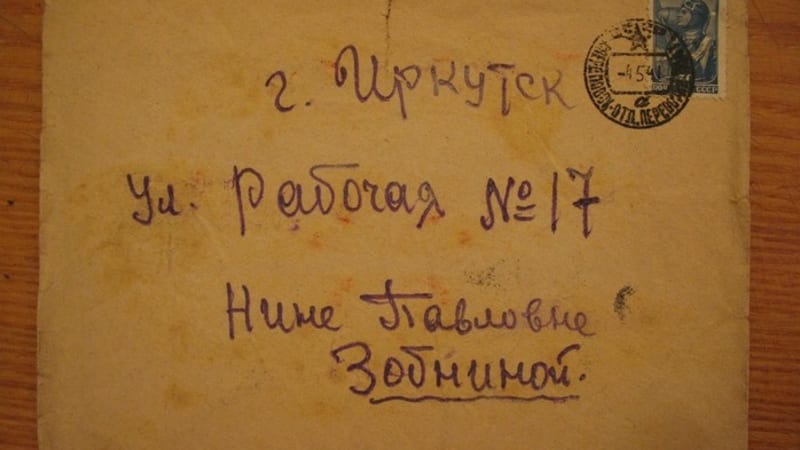 г. Иркутск
ул. Рабочая № 17
Нине Павловне
Зобниной.
-4.5.4
СССР